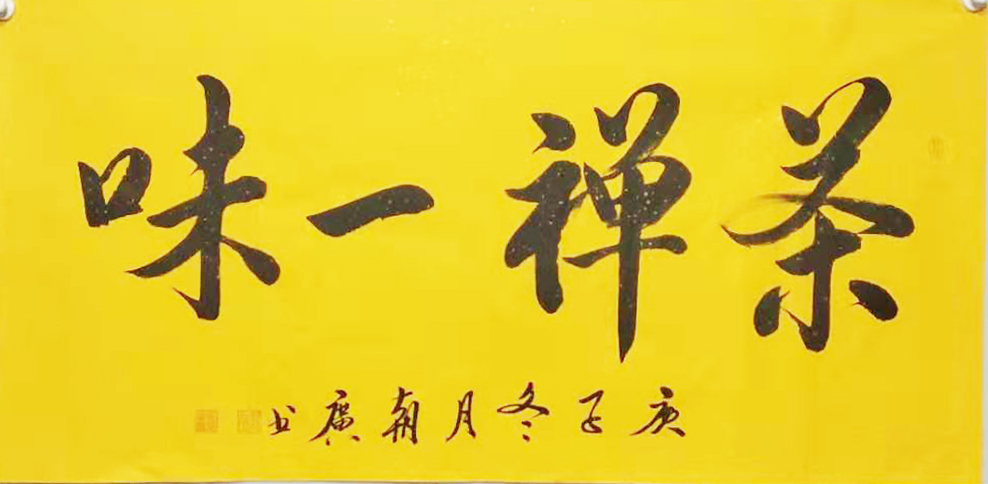 茶禅一味
庚子冬月朝廣书